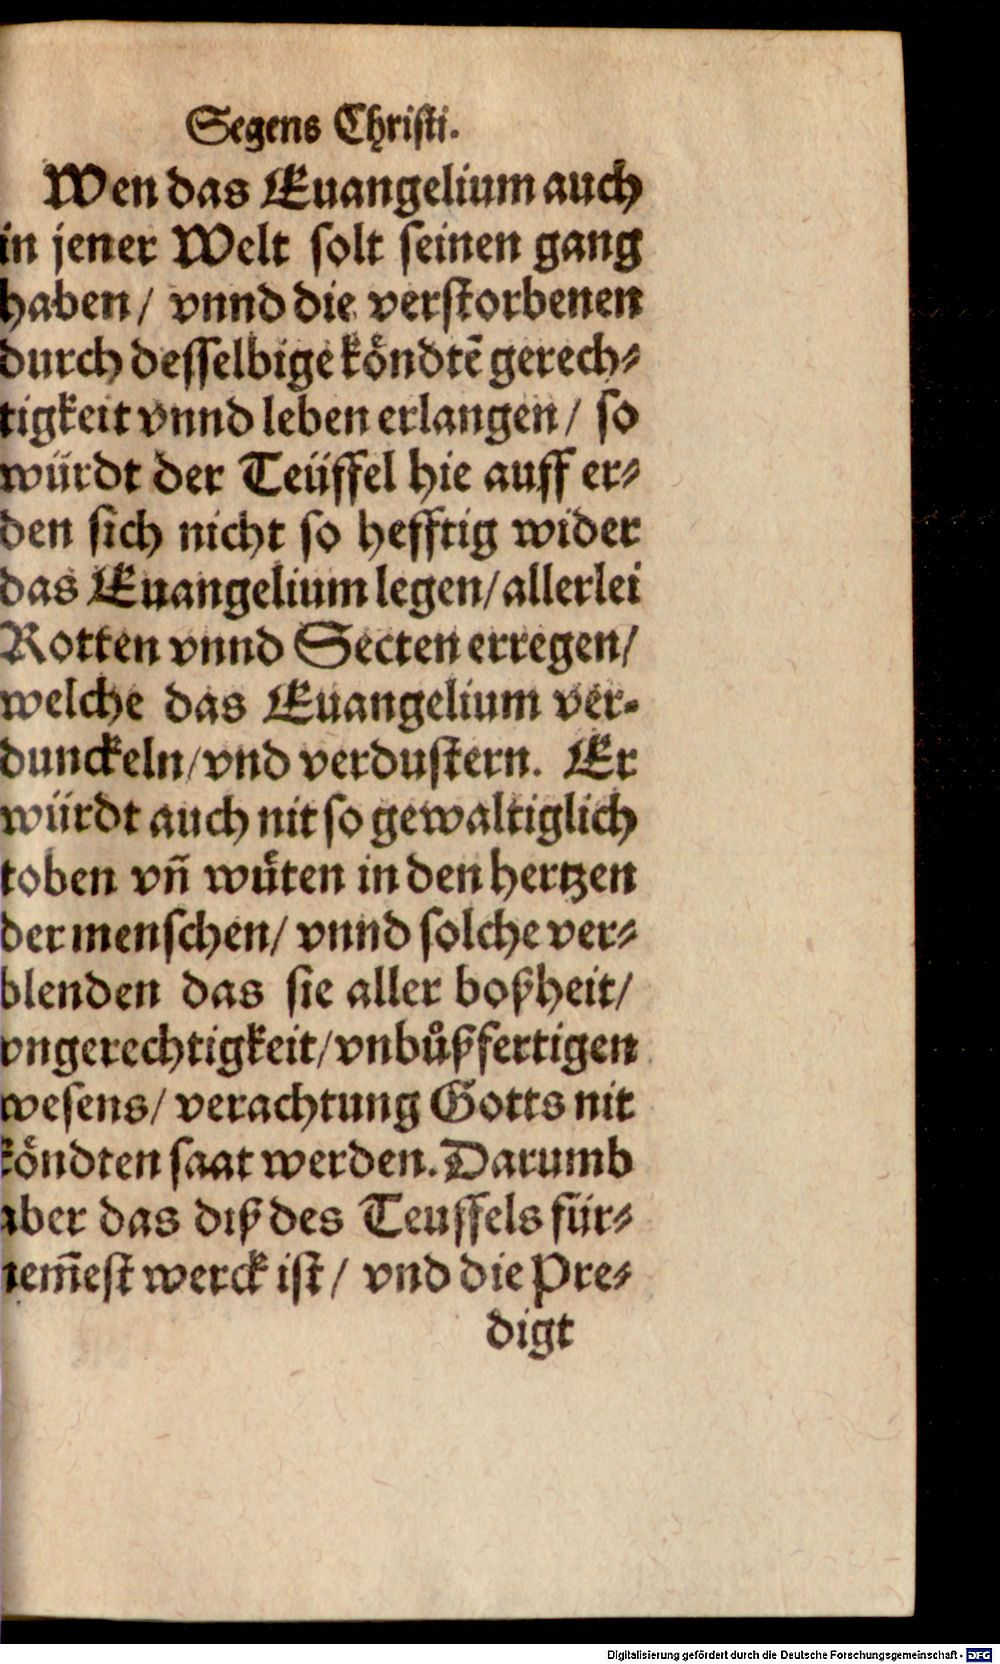 Segens Christi.
Wen das Euangelium auch
in jener Welt solt seinen gang
haben/ vnnd die verstorbenen
durch desselbige koͤndtē gerech⸗
tigkeit vnnd leben erlangen/ so
würdt der Teüffel hie auff er⸗
den sich nicht so hefftig wider
das Euangelium legen/ allerlei
Rotten vnnd Secten erregen/
welche das Euangelium ver-
dunckeln/ vnd verdustern. Er
würdt auch nit so gewaltiglich
toben vñ wuͤten in den hertzen
der menschen/ vnnd solche ver⸗
blenden das sie aller boßheit/
vngerechtigkeit/ vnbuͦßfertigen
wesens/ verachtung Gotts nit
koͤndten saat werden. Darumb
aber das diß des Teuffels für⸗
nem̄est werck ist/ vnd die Pre⸗
digt
Digitalisierung gefördert durch die Deutsche Forschungsgemeinschaft - DFG